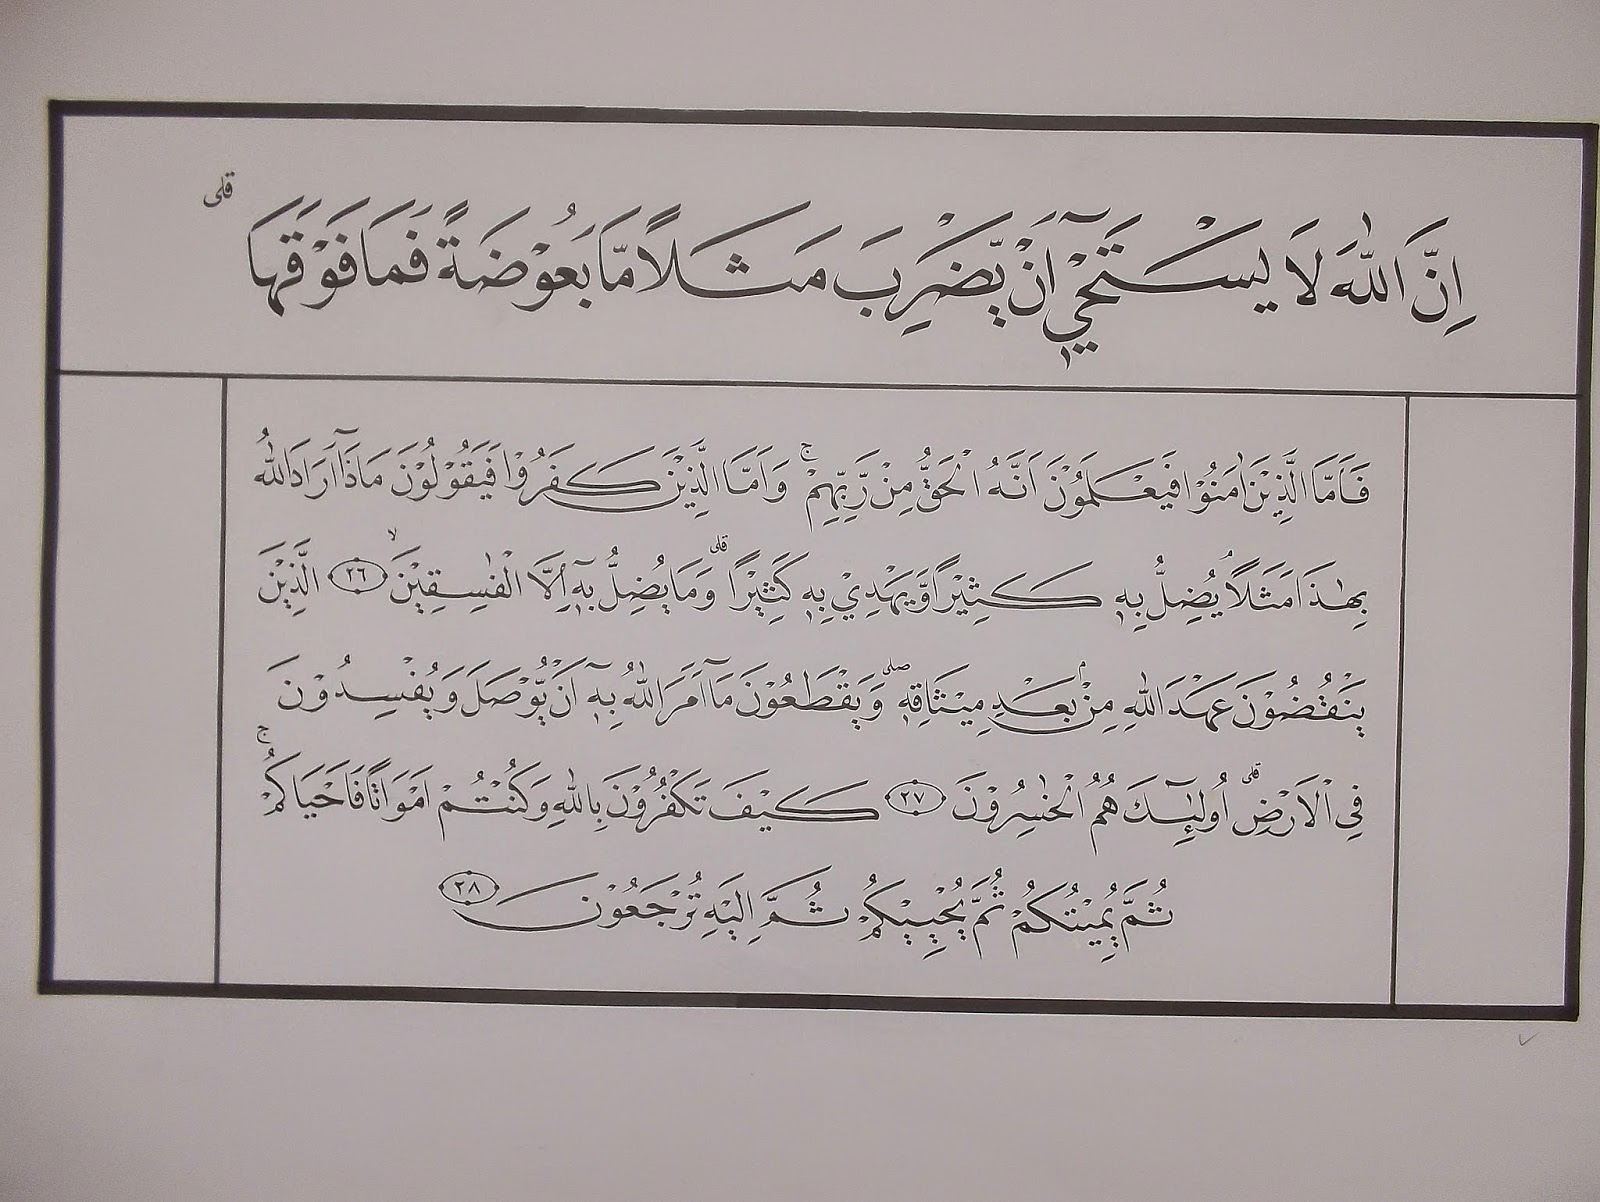 اِنَّ اللّٰهَ لَا يَسْتَحْيٖٓ اَنْ يَّضْرِبَ مَثَلًا مَّا بَعُوْضَةً فَمَا فَوْقَهَا ۗ
فَاَمَّا الَّذِيْنَ اٰمَنُوْا فَيَعْلَمُوْنَ اَنَّهُ الْحَقُّ مِنْ رَّبِّهِمْ ۚ وَاَمَّا الَّذِيْنَ كَفَرُوْا فَيَقُوْلُوْنَ مَاذَآ اَرَادَ اللّٰهُ
بِهٰذَا مَثَلًا ۘ يُضِلُّ بِهٖ كَثِيْرًا وَّيَهْدِيْ بِهٖ كَثِيْرًا ۗ وَمَا يُضِلُّ بِهٖٓ اِلَّا الْفٰسِقِيْنَ ۙ ٢٦ الَّذِيْنَ
يَنْقُضُوْنَ عَهْدَ اللّٰهِ مِنْۢ بَعْدِ مِيْثَاقِهٖ ۖ وَيَقْطَعُوْنَ مَآ اَمَرَ اللّٰهُ بِهٖٓ اَنْ يُّوْصَلَ وَيُفْسِدُوْنَ
فِى الْاَرْضِ ۗ اُولٰۤىِٕكَ هُمُ الْخٰسِرُوْنَ ٢٧ كَيْفَ تَكْفُرُوْنَ بِاللّٰهِ وَكُنْتُمْ اَمْوَاتًا فَاَحْيَاكُمْ ۚ
ثُمَّ يُمِيْتُكُمْ ثُمَّ يُحْيِيْكُمْ ثُمَّ اِلَيْهِ تُرْجَعُوْنَ ٢٨